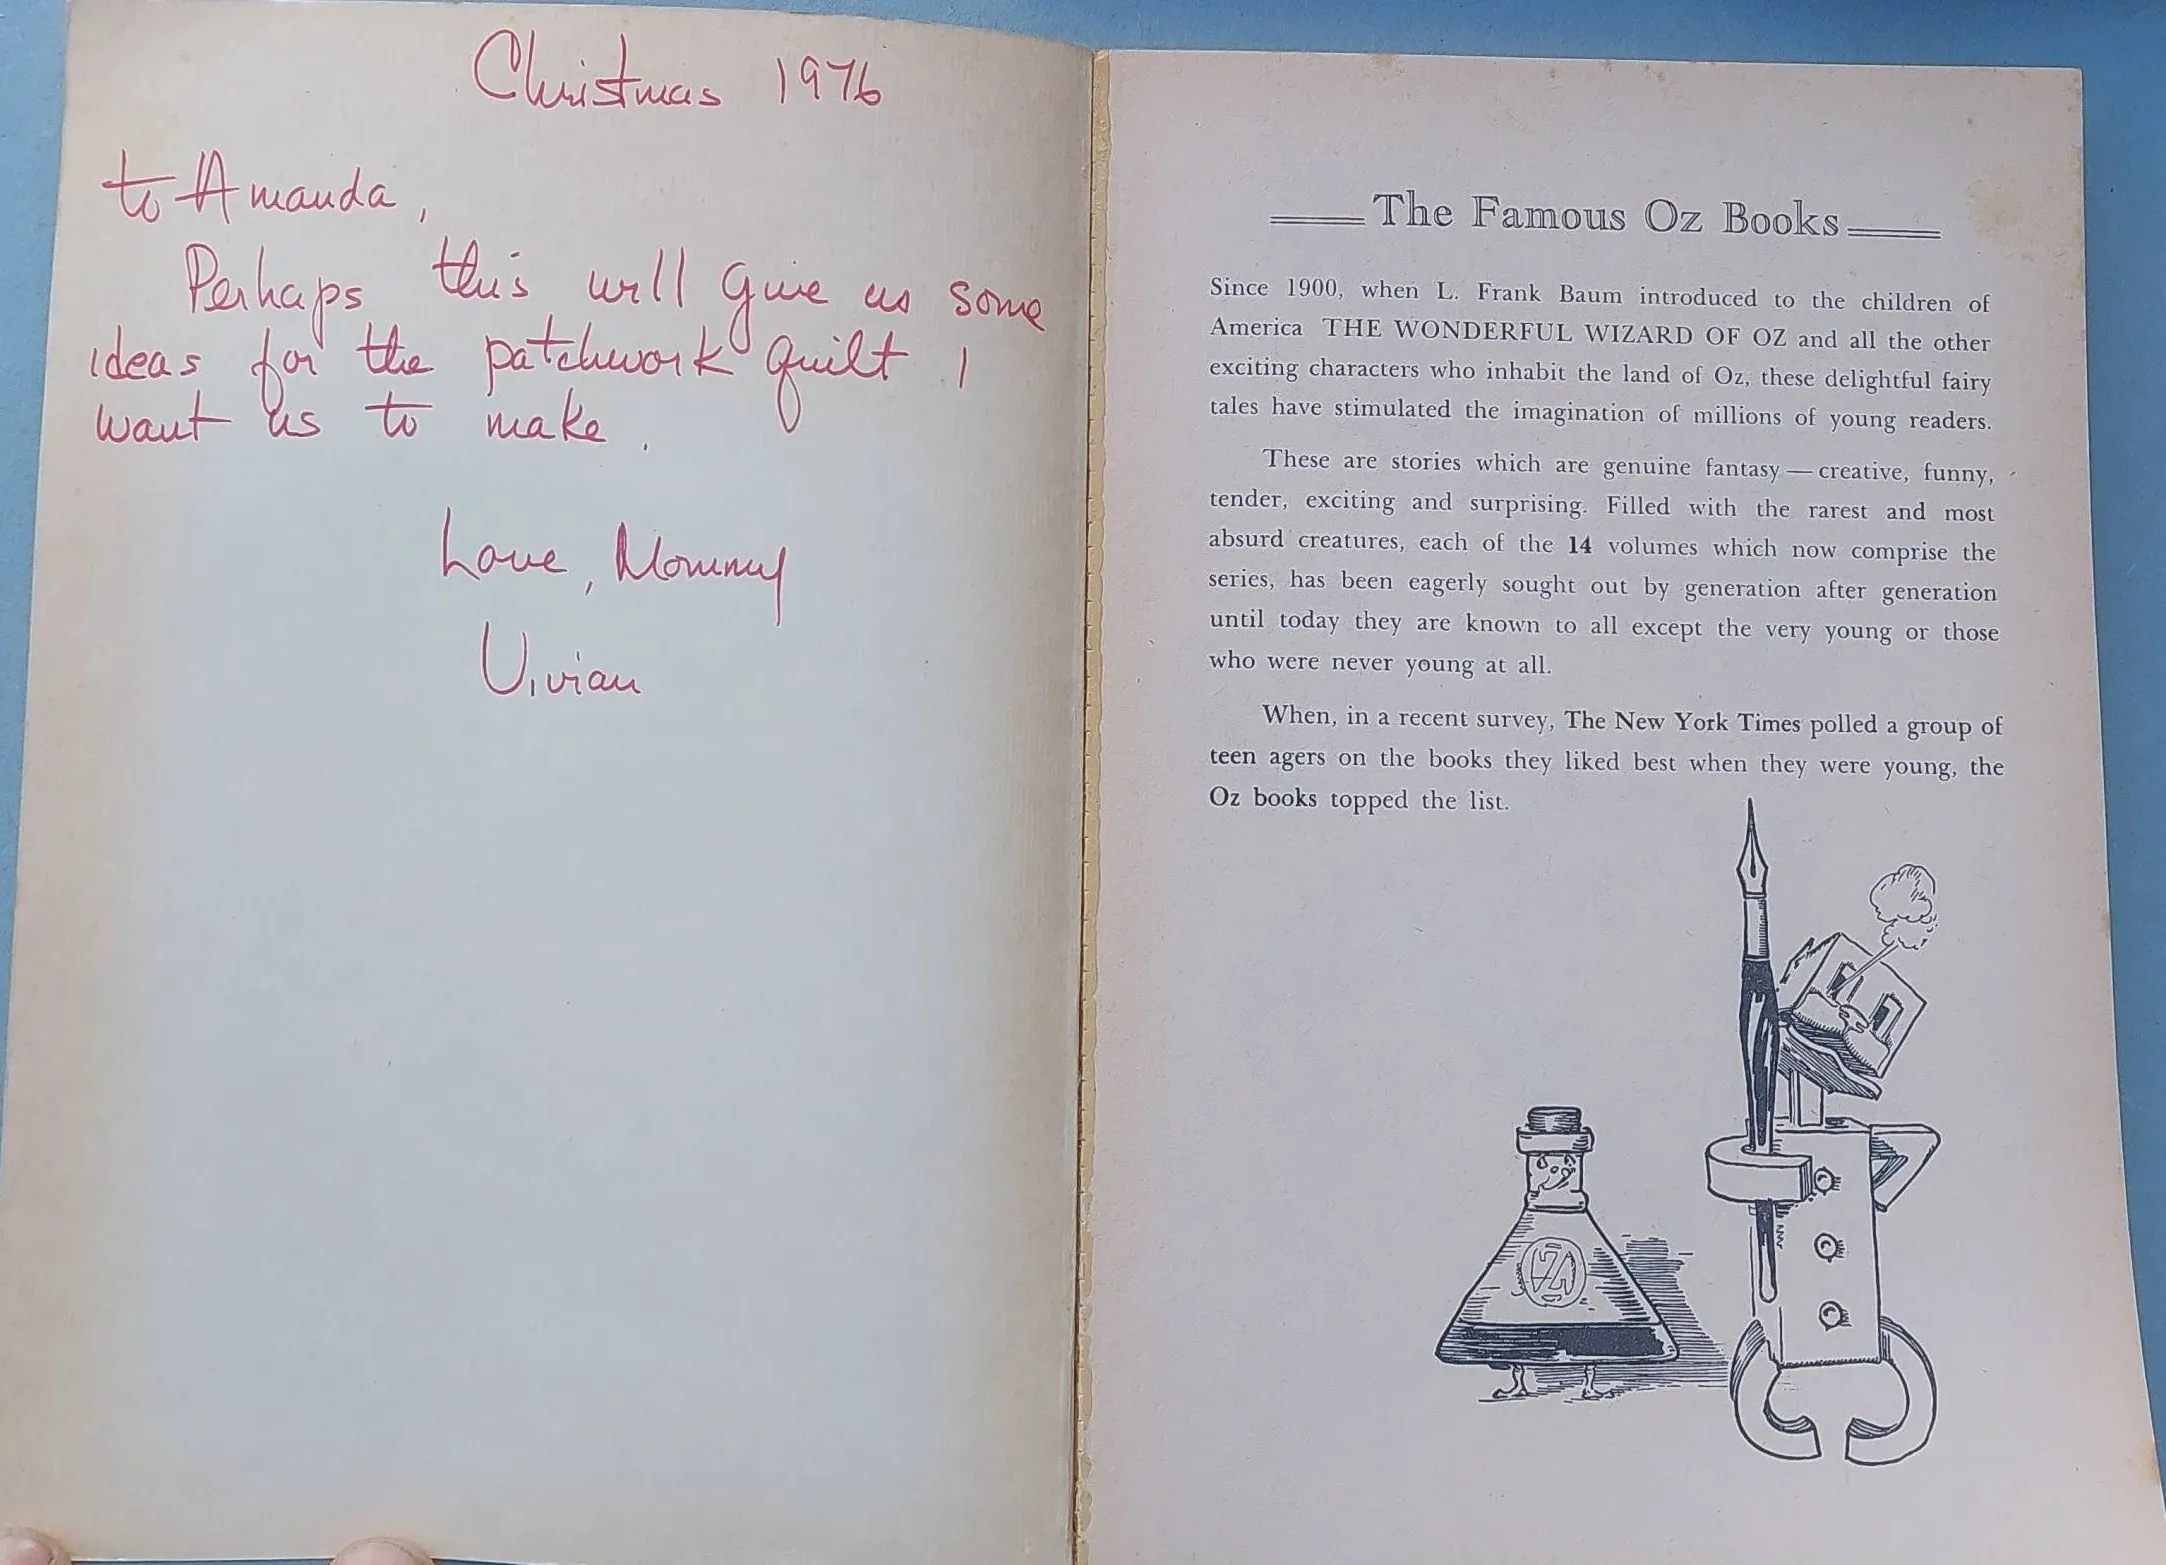 Christmas 1976
to Amanda,
Perhaps this will give us some
ideas for the patchwork quilt I
want us to make.
Love, Mommy
Vivian
The Famous Oz Books
Since 1900, when L. Frank Baum introduced to the children of
America THE WONDERFUL WIZARD OF OZ and all the other
exciting characters who inhabit the land of Oz, these delightful fairy
tales have stimulated the imagination of millions of young readers.
These are stories which are genuine fantasy — creative, funny,
tender, exciting and surprising. Filled with the rarest and most
absurd creatures, each of the 14 volumes which now comprise the
series, has been eagerly sought out by generation after generation
until today they are known to all except the very young or those
who were never young at all.
When, in a recent survey, The New York Times polled a group of
teen agers on the books they liked best when they were young, the
Oz books topped the list.
OZ